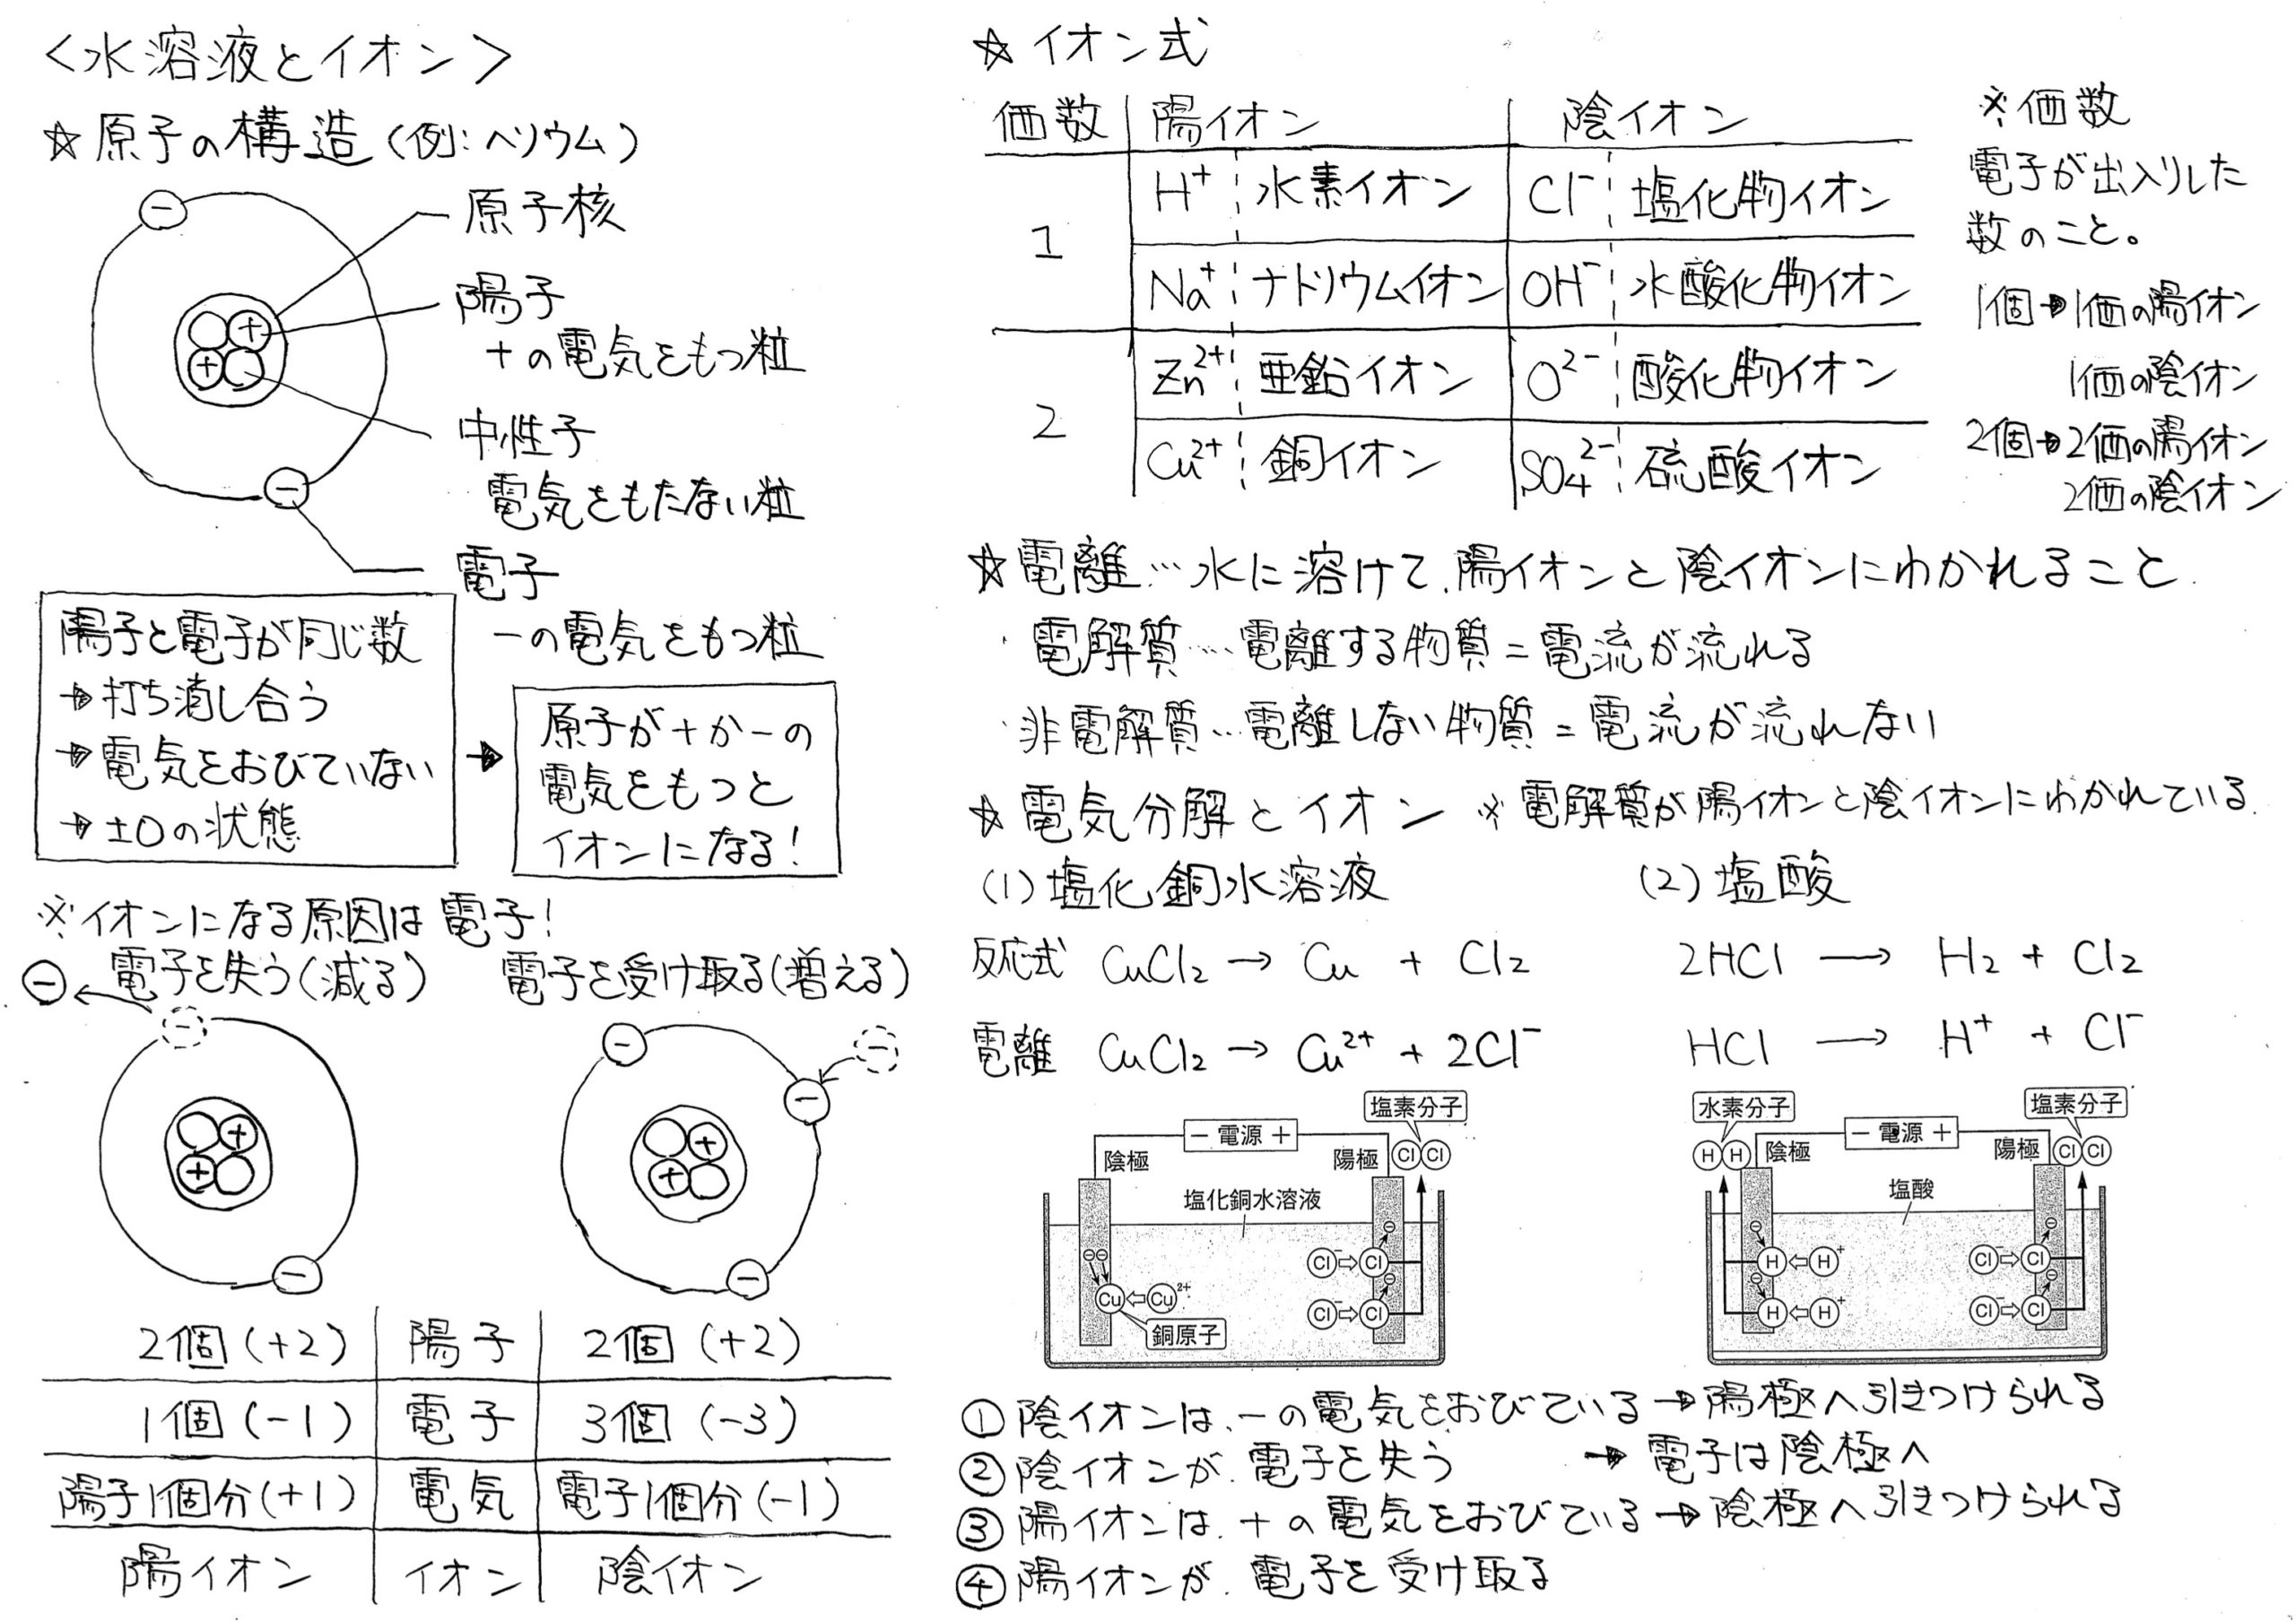 <水溶液とイオン>
☆原子の構造(例:ヘリウム)
原子核
陽子
+の電気をもつ粒
中性子
電気をもたない粒
電子
−の電気をもつ粒
陽子と電子が同じ数
→打ち消し合う
→電気をおびていない
→±0の状態
→
原子が+か−の
電気をもつと
イオンになる!
※イオンになる原因は電子!
電子を失う(減る) 電子を受け取る(増える)
2個(+2) 陽子 2個(+2)
1個(−1) 電子 3個(−3)
陽子1個分(+1) 電気 電子1個分(−1)
陽イオン イオン 陰イオン
☆イオン式
価数 陽イオン 陰イオン
1
H⁺ 水素イオン Cl⁻ 塩化物イオン
Na⁺ ナトリウムイオン OH⁻ 水酸化物イオン
2
Zn²⁺ 亜鉛イオン O²⁻ 酸化物イオン
Cu²⁺ 銅イオン SO₄²⁻ 硫酸イオン
※価数
電子が出入りした
数のこと。
1個→1価の陽イオン
1価の陰イオン
2個→2価の陽イオン
2価の陰イオン
☆電離…水に溶けて、陽イオンと陰イオンにわかれること.
・電解質…電離する物質=電流が流れる
・非電解質…電離しない物質=電流が流れない
☆電気分解とイオン ※電解質が陽イオンと陰イオンにわかれている.
(1)塩化銅水溶液 (2)塩酸
反応式 CuCl₂→Cu + Cl₂ 2HCl→H₂ + Cl₂
電離 CuCl₂→Cu²⁺ + 2Cl⁻ HCl→H⁺ + Cl⁻
塩素分子
− 電源 +
陰極 陽極 Cl Cl
塩化銅水溶液
Cl⁻⇨Cl
Cu⇦Cu²⁺ Cl⁻⇨Cl
銅原子
水素分子 塩素分子
− 電源 +
H H 陰極 陽極 Cl Cl
塩酸
H⇦H⁺ Cl⁻⇨Cl
H⇦H⁺ Cl⁻⇨Cl
①陰イオンは、−の電気をおびている→陽極へ引きつけられる
②陰イオンが、電子を失う →電子は陰極へ
③陽イオンは、+の電気をおびている→陰極へ引きつけられる
④陽イオンが、電子を受け取る